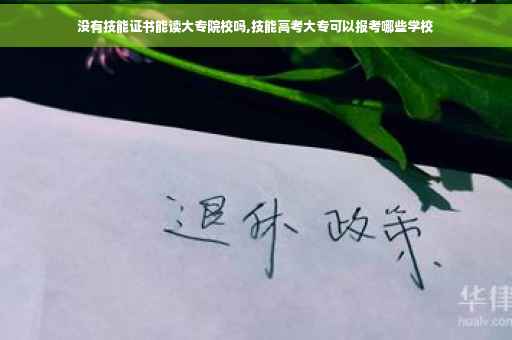 没有技能证书能读大专院校吗,技能高考大专可以报考哪些学校
退休 政策
华律
hualv.com